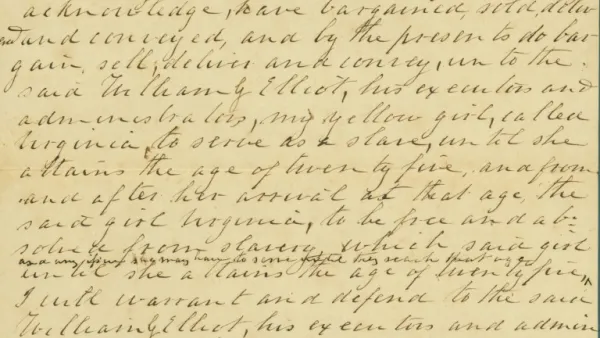 acknowledge, have bargained, sold, deliv
ered and conveyed, and by the presents do bar
gain, sell, deliver and convey, unto the
said William G Elliot, his executors and
administrators, my yellow girl, called
Virginia, to serve as a slave, until she
attains the age of twenty five, and from
and after her arrival at that age, the
said girl Virginia, to be free and ab-
solved from slavery, which said girl
and any issue she may have to serve they reach that age
until she attains the age of twenty five,
I will warrant and defend to the said
William G Elliot, his executors and admin